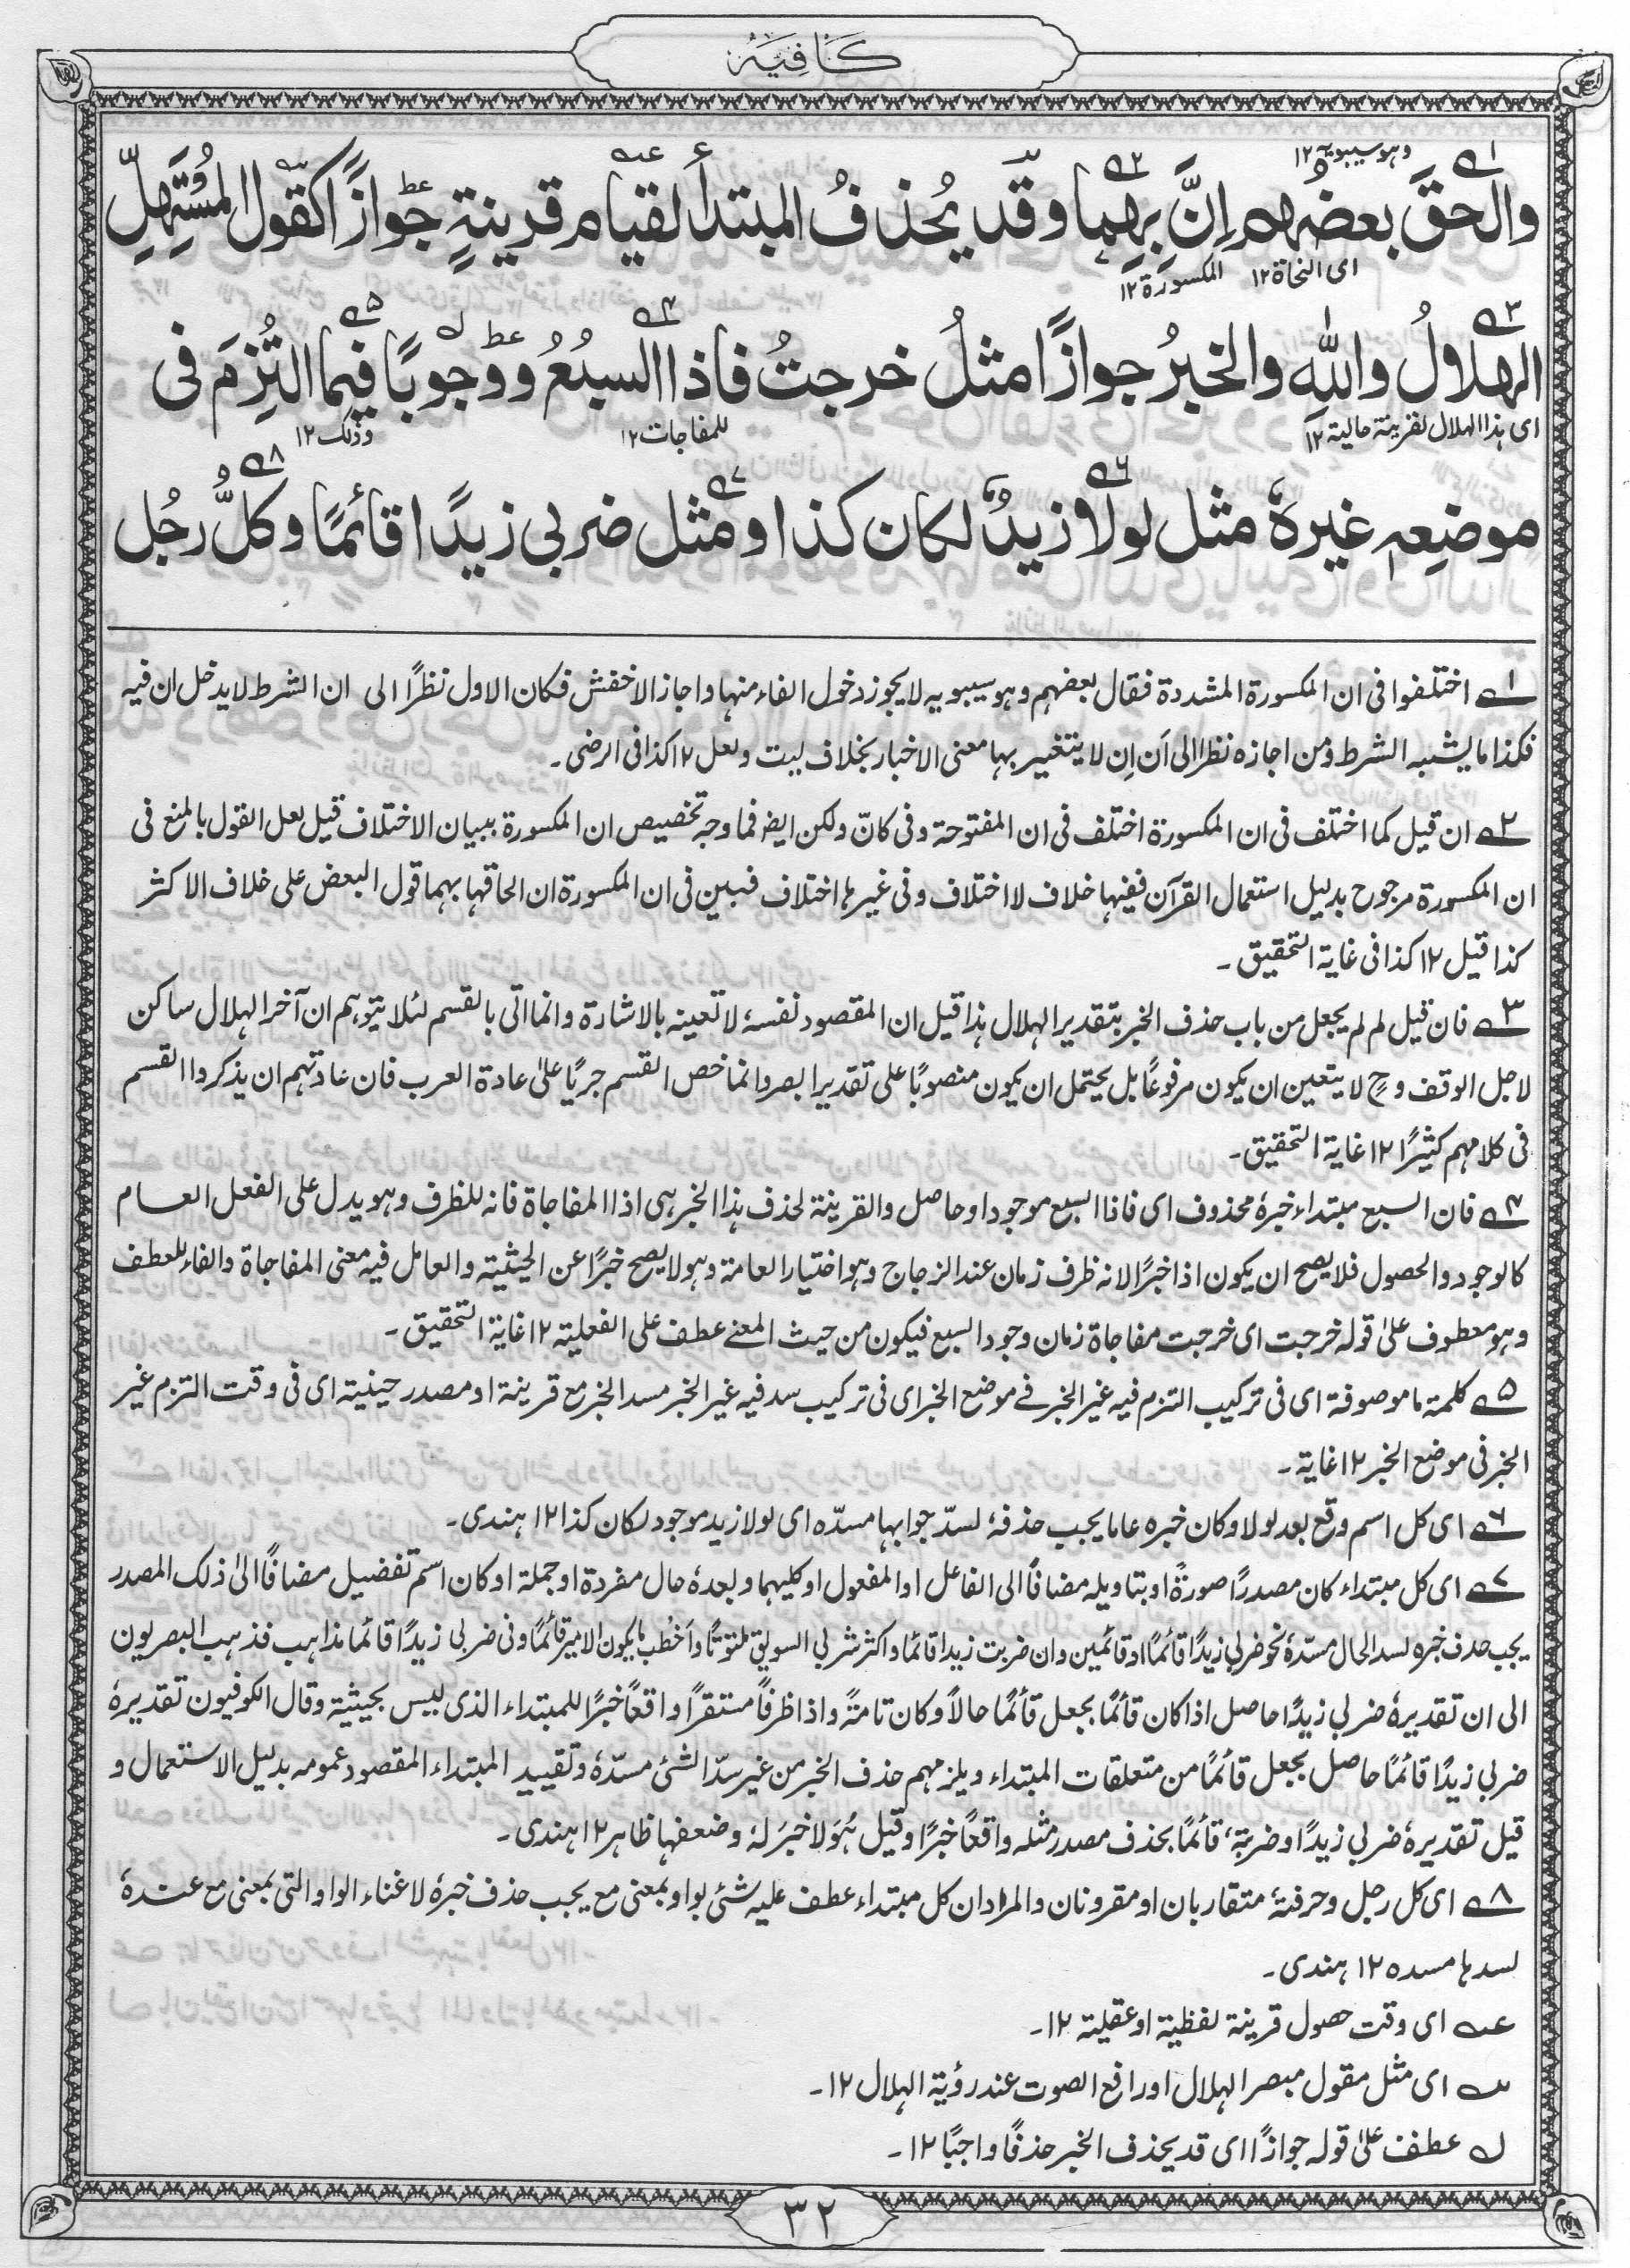 كَافِيَه
وهو سيبويه ١٢
والحقَ بعضُهم اِنَّ بِهِما وقد يُحذفُ المبتدأ لقيام قرينةٍ جَوازًا كقول المُسْتَهِلِّ
اى النحاة ١٢ المكسورة ١٢
الهلالُ واللّٰهِ والخبرُ جوازًا مثلُ خرجتُ فاذا السبُعُ ووجوبًا فيما التُزِمَ فى
اى هذا الهلال لقرينة حالية ١٢ للمفاجات ١٢ وذلك ١٢
موضِعِه غيرهٗ مثل لولا زيدٌ لكان كذا ومثل ضربى زيدًا قائمًا وكلُّ رجُل
١ اختلفوا فى ان المكسورة المشددة فقال بعضهم وهو سيبويه لا يجوز دخول الفاء منها واجاز الاخفش فكان الاول نظرًا الى ان الشرط لا يدخل ان فيه
فكذا ما يشبه الشرط ومن اجازه نظرا الى اَن اِن لا يتغير بها معنى الاخبار بخلاف ليت ولعل ١٢ كذا فى الرضى۔
٢ ان قيل كما اختلف فى ان المكسورة اختلف فى ان المفتوحة وفى كانّ ولكن ايض فما وجه تخصيص ان المكسورة ببيان الاختلاف قيل لعل القول بالمنع فى
ان المكسورة مرجوح بدليل استعمال القرآن ففيها خلاف لا اختلاف وفى غيرها اختلاف فبين فى ان المكسورة ان الحاقها بهما قول البعض على خلاف الاكثر
كذا قيل ١٢ كذا فى غاية التحقيق۔
٣ فان قيل لم لم يجعل من باب حذف الخبر بتقدير الهلال هذا قيل ان المقصود نفسهٗ لا تعينه بالاشارة وانما اتى بالقسم لئلا يتوهم ان آخر الهلال ساكن
لاجل الوقف وح لا يتعين ان يكون مرفوعًا بل يحتمل ان يكون منصوبًا على تقدير ابصر وانما خص القسم جريًا علىٰ عادة العرب فان عادتهم ان يذكروا القسم
فى كلامهم كثيرًا ١٢ غاية التحقيق۔
٤ فان السبع مبتداء خبرهٗ محذوف اى فاذا السبع موجود او حاصل والقرينة لحذف هذا الخبر هى اذا المفاجاة فانه للظرف وهو يدل على الفعل العام
كالوجود والحصول فلا يصح ان يكون اذا خبرًا لانه ظرف زمان عند الزجاج وهو اختيار العامة وهو لا يصح خبرًا عن الجثيته والعامل فيه معنى المفاجاة والفاء للعطف
وهو معطوف علىٰ قوله خرجت اى خرجت مفاجاة زمان وجود السبع فيكون من حيث المعنے عطف على الفعلية ١٢ غاية التحقيق۔
٥ كلمة ما موصوفة اى فى تركيب التزم فيه غير الخبر فے موضع الخبر اى فى تركيب سد فيه غير الخبر مسد الخبر مع قرينة او مصدر حينية اى فى وقت التزم غير
الخبر فى موضع الخبر ١٢ غاية۔
٦ اى كل اسم وقع بعد لولا وكان خبره عاما يجب حذفهٗ لسدّ جوابها مسدّه اى لولا زيد موجود لكان كذا ١٢ هندى۔
٧ اى كل مبتداء كان مصدرًا صورةً او بتاويله مضافاً الى الفاعل او المفعول او كليهما وبعدهٗ حال مفردة او جملة او كان اسم تفضيل مضافًا الىٰ ذلك المصدر
يجب حذف خبره لسد الحال مسدّهٗ نحو ضربى زيدًا قائمًا او قائمين وان ضربت زيدا قائما واكثر شربى السويق ملتوتًا واَخطُب ما يكون الامير قائمًا وفى ضربى زيدًا قائما مذاهب فذهب البصريون
الى ان تقديرهٗ ضربى زيدًا حاصل اذا كان قائمًا بجعل قائمًا حالاً وكان تامةً واذا ظرفاً مستقرًا واقعاً خبرًا للمبتداء الذى ليس بجيثية وقال الكوفيون تقديرهٗ
ضربى زيدًا قائمًا حاصل بجعل قائمًا من متعلقات المبتداء ويلزمهم حذف الخبر من غير سدّ الشئ مسدّهٗ وتقييد المبتداء المقصود عمومه بدليل الاستعمال و
قيل تقديرهٗ ضربى زيدًا وضربته قائمًا بحذف مصدر مثله واقعاً خبرًا وقيل هُوَ لا خبرَ لهٗ وضعفها ظاهر ١٢ هندى۔
٨ اى كل رجل وحرفتهٗ متقاربان او مقرونان والمراد ان كل مبتداء عطف عليه شئ بواو بمعنى مع يجب حذف خبرهٗ لاغناء الواو التى بمعنى مع عندهٗ
لسدها مسده ١٢ هندى۔
عـه اى وقت حصول قرينة لفظية او عقلية ١٢۔
سـه اى مثل مقول مبصر الهلال او رافع الصوت عند رؤية الهلال ١٢۔
لـه عطف علىٰ قوله جوازًا اى قد يحذف الخبر حذفًا واجبًا ١٢۔
٣٢